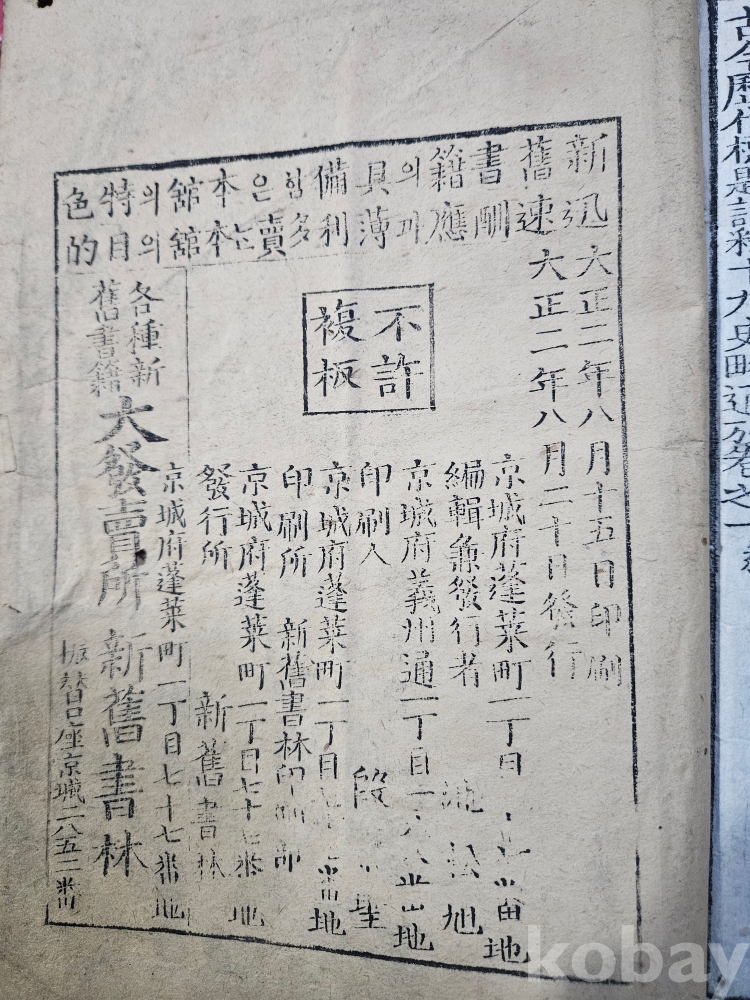 古今歷代標題註釋十九史略通攷卷之一
新舊書籍의具備함은本舘의特色
迅速酬應과薄利多賣는本舘의目的
大正二年八月十五日印刷
大正二年八月二十日發行
不許
複板
京城府蓬萊町一丁目七十七番地
編輯兼發行者 池松旭
京城府義州通一丁目
番地
印刷人
聖
京城府蓬萊町一丁目
番地
印刷所 新舊書林印刷部
京城府蓬萊町一丁目七十七番地
發行所 新舊書林
京城府蓬萊町一丁目七十七番地
各種新
舊書籍
大發賣所 新舊書林
振替口座京城二八五二番
kobay